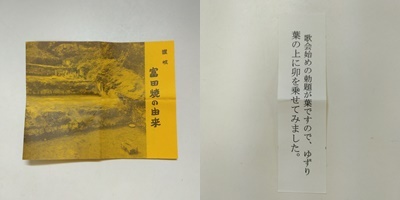 讃岐
富田焼の由来
歌会始めの勅題が葉ですので、ゆずり
葉の上に卯を乗せてみました。